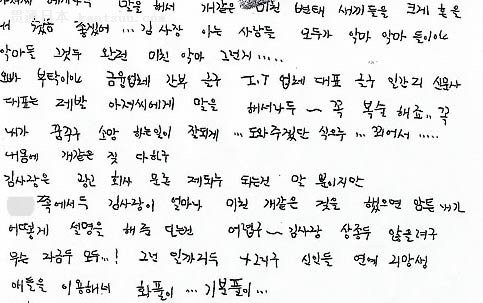 말을 해서 개같은 미친 변태 새끼들을 크게 혼을
좋겠어 ... 김사장 아는 사람들 모두가 악마 악마 들이야
악마들 그것두 완전 미친 악마 그런지 .....
오빠 부탁이야 금융업체 간부 글구 I.T 업체 대표 글구 일간지 신문사
대표는 제발 아저씨에게 말을 해서라두 ~ 꼭 복수 해죠.. 꼭
내가 꿈꾸구 소망 하는일이 잘되게 ... 도와주겠단 식으루 ... 꾀어서 .....
나중에 개같은 짓 다하구
김사장은 광고 회사 모두 제되루 되는건 말 뿐이지만
쪽에서두 김사장이 얼마나 미친 개같은 것을 했으면 암튼 내가
어떻게 설명을 해 주 다는건 어렵구 ~ 김사장 상종두 않을려구
우는 자금두 모두 ...! 그런 일까지두 신인들 연예 지망생
애들을 이용해서 화풀이 ... 기분풀이 ...